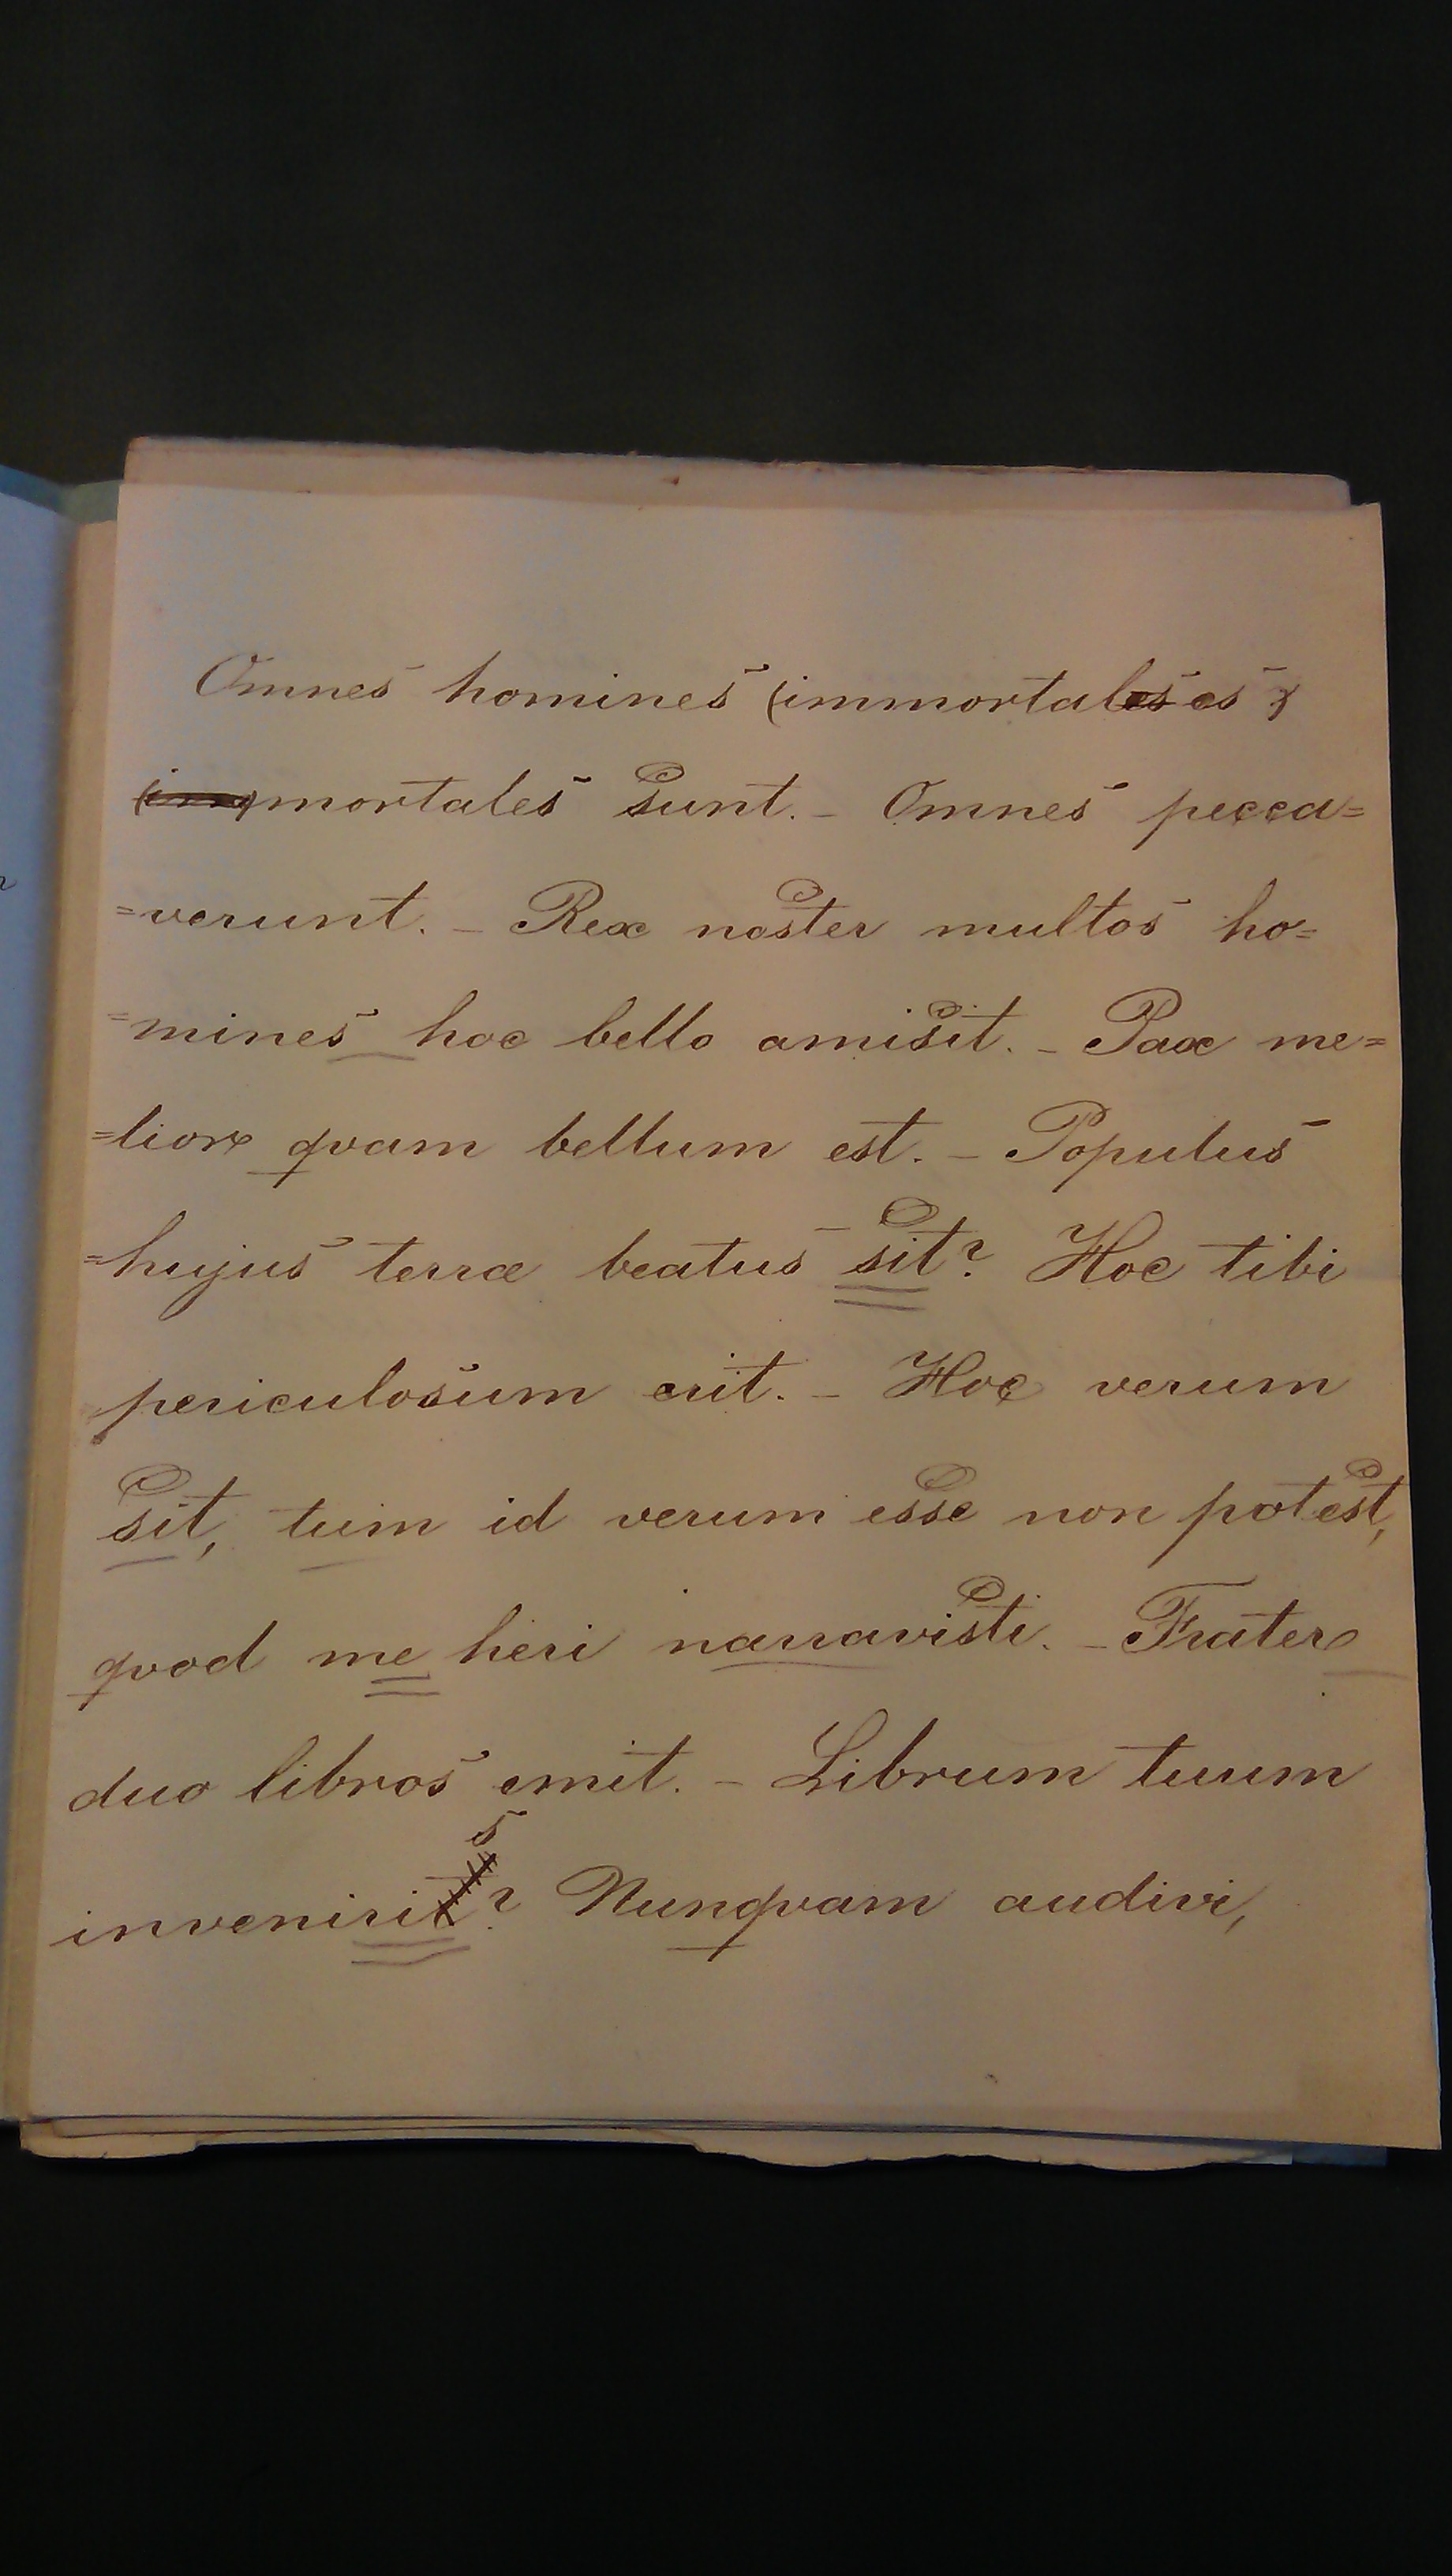 Omnes homines (immortales es)
(im)mortales sunt. – Omnes pecca=
=verunt. – Rex noster multos ho=
=mines hoc bello amisit. – Pax me=
=lior qvam bellum est. – Populus
=hujus terræ beatus sit? Hoc tibi
periculosum erit. – Hoc verum
sit, tum id verum esse non potest,
qvod me heri narravisti. – Frater
duo libros emit. – Librum tuum
s
invenirit? Nunqvam audivi,